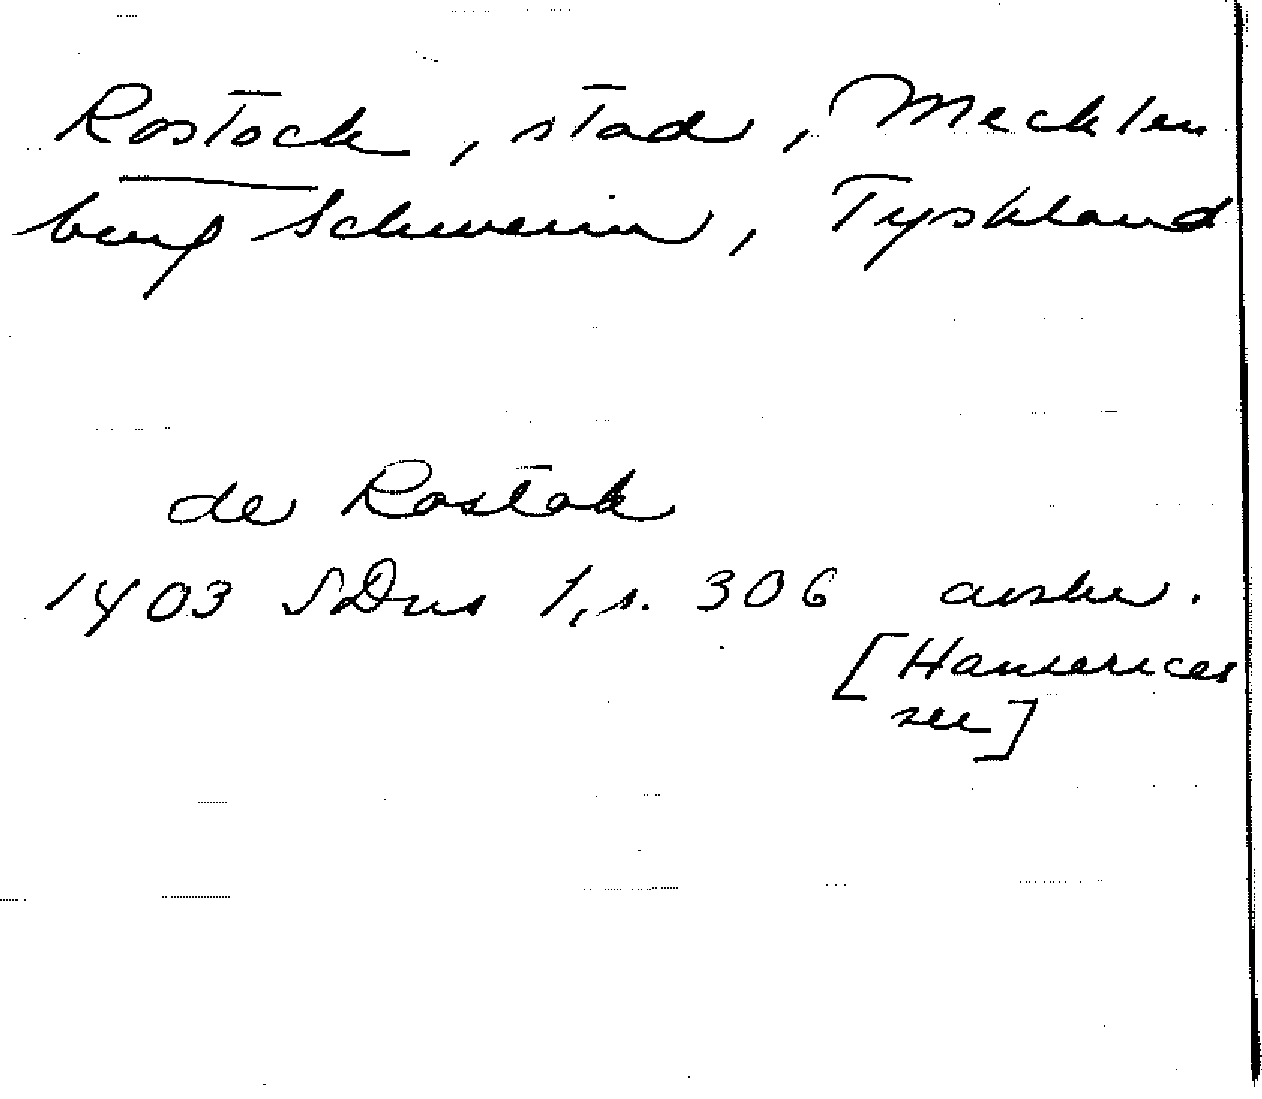 Rostock, stad, Mecklen
burg Schwerin, Tyskland
de Rostok
1403 SDns 1, s. 306 avskr.
[Hanserices
sen]